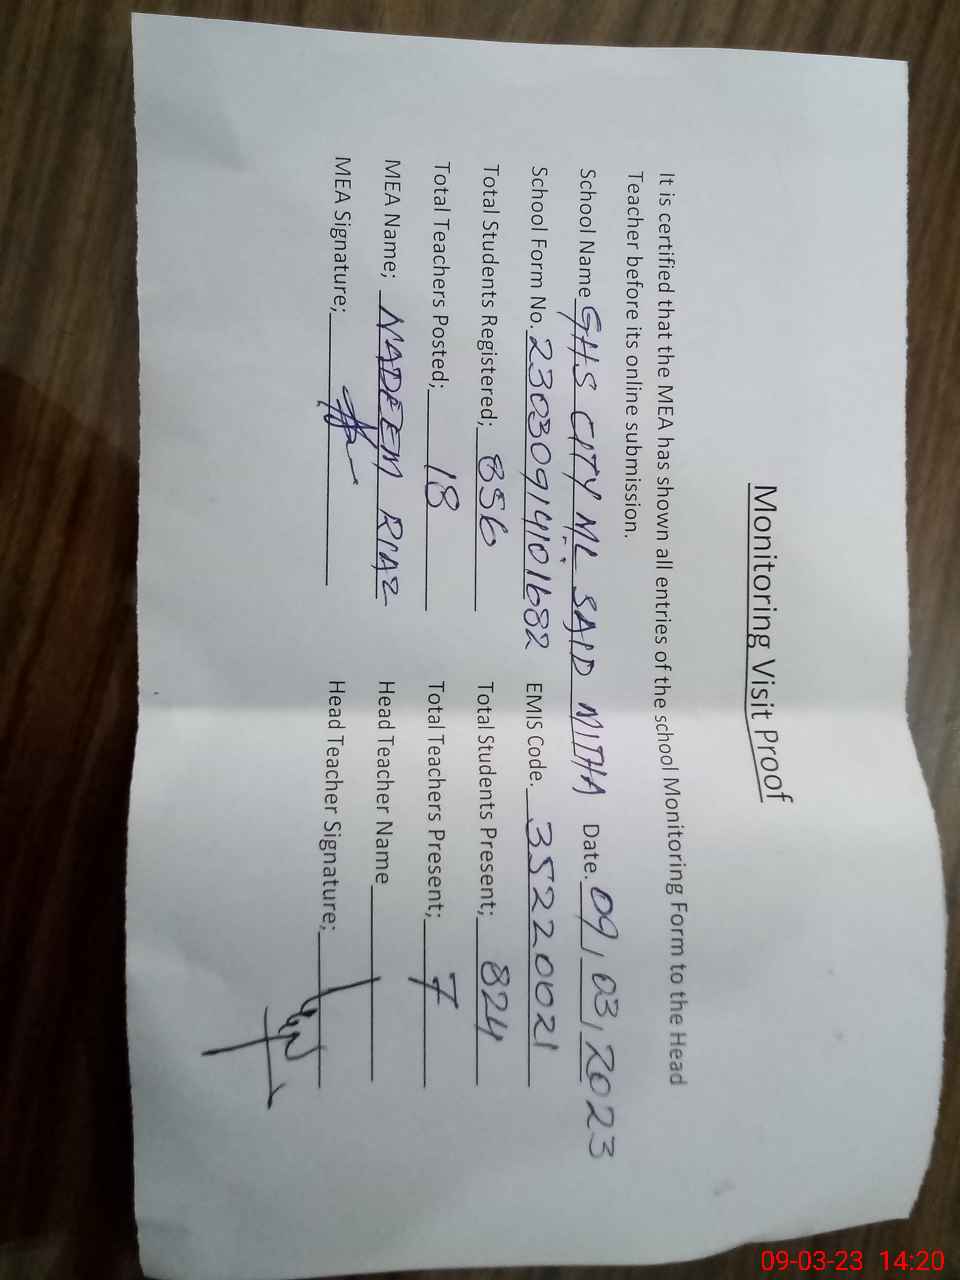 Monitoring Visit Proof
It is certified that the MEA has shown all entries of the school Monitoring Form to the Head
Teacher before its online submission.
School Name GHS CITY ML SAID MITHA Date. 09,03,2023
School Form No. 230309141401682 EMIS Code. 35220021
Total Students Registered; 856 Total Students Present; 824
Total Teachers Posted; 18 Total Teachers Present; 7
MEA Name; NADEEM RIAZ Head Teacher Name
MEA Signature; Head Teacher Signature;
09-03-23 14:20